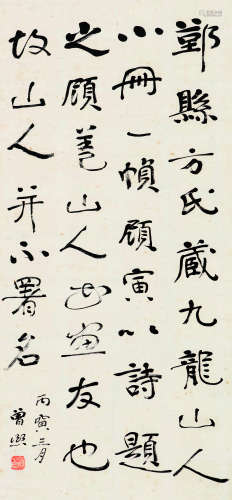 鄞縣方氏藏九龍山人
小冊一幀顧寅以詩題
之顧蓋山人畫友也
故山人并不署名
丙寅三月
曾熙